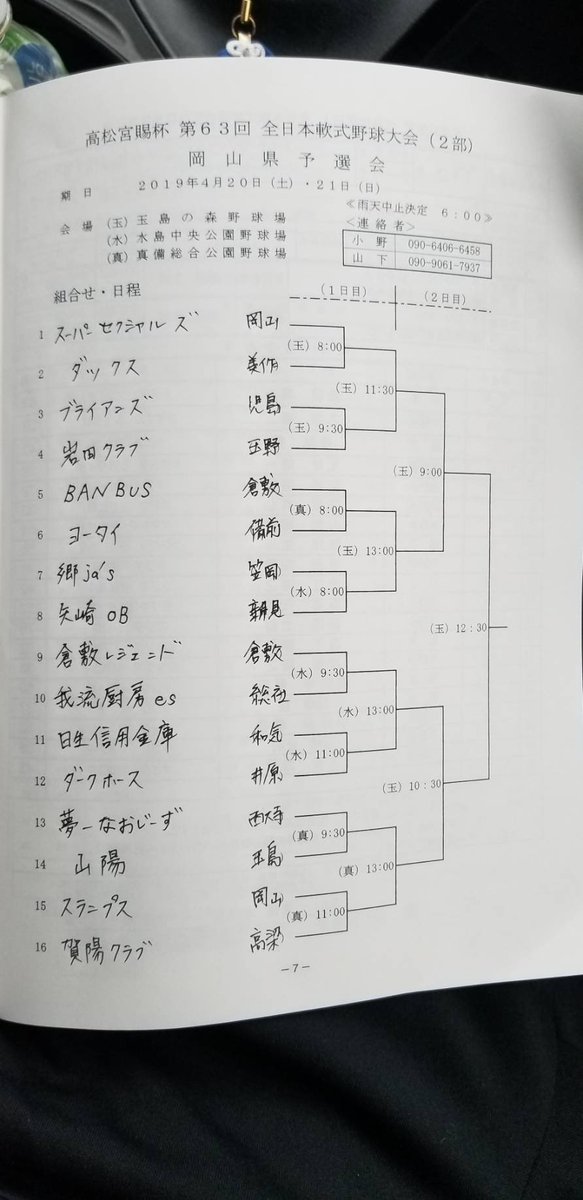 高松宮賜杯 第63回 全日本軟式野球大会(2部)
岡山県予選会
期日 2019年4月20日(土)・21日(日)
≪雨天中止決定 6:00≫
会場 (玉)玉島の森野球場
(水)水島中央公園野球場
(真)真備総合公園野球場
<連絡者>
小野 090-6406-6458
山下 090-9061-7937
組合せ・日程
(1日目) (2日目)
1 スーパーセクシャルズ 岡山
(玉) 8:00
2 ダックス 美作
(玉) 11:30
3 ブライアンズ 児島
(玉) 9:30
4 岩田クラブ 玉野
(玉) 9:00
5 BANBUS 倉敷
(真) 8:00
6 ヨータイ 備前
(玉) 13:00
7 郷ja's 笠岡
(水) 8:00
8 矢崎OB 新見
(玉) 12:30
9 倉敷レジェンド 倉敷
(水) 9:30
10 我流厨房es 総社
(水) 13:00
11 日生信用金庫 和気
(水) 11:00
12 ダークホース 井原
(玉) 10:30
13 夢一なおじーず 西大寺
(真) 9:30
14 山陽 玉島
(真) 13:00
15 スランプス 岡山
(真) 11:00
16 賀陽クラブ 高梁
-7-